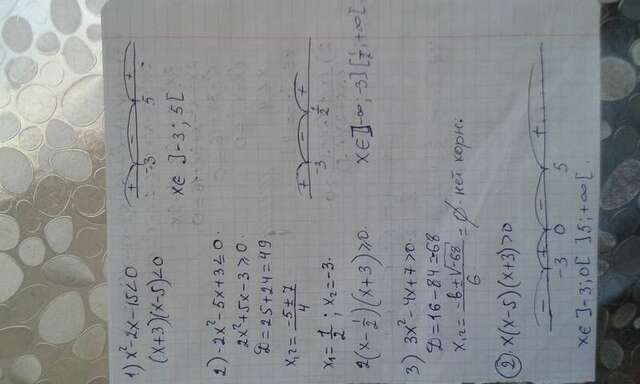 1) x²-2x-15<0
(x+3)(x-5)<0
+ - +
-3 5
x∈ ]-3; 5[
2) -2x²-5x+3≤0.
2x²+5x-3≥0.
D=25+24=49
x₁,₂= (-5±7)/4
x₁=1/2; x₂=-3.
2(x-1/2)(x+3)≥0.
+ - +
-3 1/2
x∈]-∞; -3] [1/2; +∞[
3) 3x²-4x+7>0.
D=16-84=-68
x₁,₂= (-b±√-68)/6 =∅. нет корн.
② x(x-5)(x+3)>0
- + - +
-3 0 5
x∈]-3;0[ ]5;+∞[.